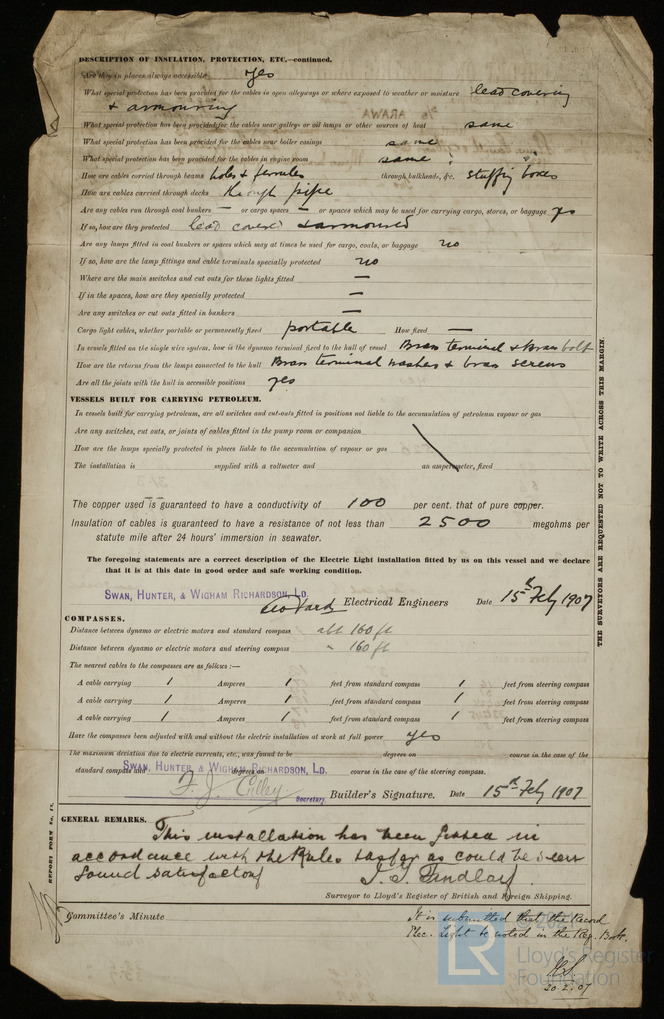 DESCRIPTION OF INSULATION, PROTECTION, ETC.—continued.
Are they in places always accessible yes
What special protection has been provided for the cables in open alleyways or where exposed to weather or moisture lead covering
& armouring
What special protection has been provided for the cables near galleys or oil lamps or other sources of heat same
What special protection has been provided for the cables near boiler casings same
What special protection has been provided for the cables in engine room same
How are cables carried through beams holes & ferrules through bulkheads, &c. stuffing boxes
How are cables carried through decks through pipe
Are any cables run through coal bunkers — or cargo spaces — or spaces which may be used for carrying cargo, stores, or baggage yes
If so, how are they protected lead covered & armoured
Are any lamps fitted in coal bunkers or spaces which may at times be used for cargo, coals, or baggage no
If so, how are the lamp fittings and cable terminals specially protected no
Where are the main switches and cut outs for these lights fitted —
If in the spaces, how are they specially protected —
Are any switches or cut outs fitted in bunkers —
Cargo light cables, whether portable or permanently fixed portable How fixed —
In vessels fitted on the single wire system, how is the dynamo terminal fixed to the hull of vessel Brass terminal & Brass bolt
How are the returns from the lamps connected to the hull Brass terminal washers & brass screws
Are all the joints with the hull in accessible positions yes
VESSELS BUILT FOR CARRYING PETROLEUM.
In vessels built for carrying petroleum, are all switches and cut-outs fitted in positions not liable to the accumulation of petroleum vapour or gas
Are any switches, cut outs, or joints of cables fitted in the pump room or companion
How are the lamps specially protected in places liable to the accumulation of vapour or gas
The installation is supplied with a voltmeter and an amperemeter, fixed
The copper used is guaranteed to have a conductivity of 100 per cent. that of pure copper.
Insulation of cables is guaranteed to have a resistance of not less than 2500 megohms per
statute mile after 24 hours' immersion in seawater.
The foregoing statements are a correct description of the Electric Light installation fitted by us on this vessel and we declare
that it is at this date in good order and safe working condition.
SWAN, HUNTER, & WIGHAM RICHARDSON, LD.
Electrical Engineers Date 15th Feby 1907
COMPASSES.
Distance between dynamo or electric motors and standard compass abt 160 ft
Distance between dynamo or electric motors and steering compass " 160 ft
The nearest cables to the compasses are as follows:—
A cable carrying 1 Amperes 1 feet from standard compass 1 feet from steering compass
A cable carrying 1 Amperes 1 feet from standard compass 1 feet from steering compass
A cable carrying 1 Amperes 1 feet from standard compass 1 feet from steering compass
Have the compasses been adjusted with and without the electric installation at work at full power yes
The maximum deviation due to electric currents, etc., was found to be degrees on course in the case of the
standard compass and degrees on course in the case of the steering compass.
SWAN, HUNTER & WIGHAM RICHARDSON, LD.
Secretary. Builder's Signature. Date 15th Feby 1907
GENERAL REMARKS.
This installation has been fitted in
accordance with the Rules & as far as could be seen
found satisfactory
Surveyor to Lloyd's Register of British and Foreign Shipping.
Committee's Minute
It is submitted that the Record
Elec. Light be noted in the Reg. Book.
20.2.07
THE SURVEYORS ARE REQUESTED NOT TO WRITE ACROSS THIS MARGIN.
LR
Lloyd's Register
Foundation